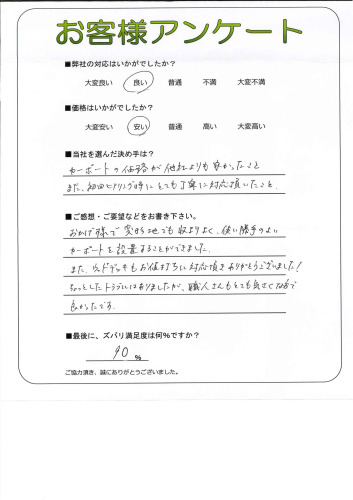 お客様アンケート
■弊社の対応はいかがでしたか？
大変良い 良い 普通 不満 大変不満
■価格はいかがでしたか？
大変安い 安い 普通 高い 大変高い
■当社を選んだ決め手は？
カーポートの価格が他社よりも安かったこと
また、初回ヒアリング時にとても丁寧に対応頂いたこと。
■ご感想・ご要望などをお書き下さい。
おかげ様で変形地でも収まりよく、使い勝手のよい
カーポートを設置することができました。
また、ウッドデッキもお値打ちに対応頂きありがとうございました！
ちょっとしたトラブルはありましたが、職人さんもとても気さくな方で
良かったです。
■最後に、ズバリ満足度は何％ですか？
90 %
ご協力頂き、誠にありがとうございました。